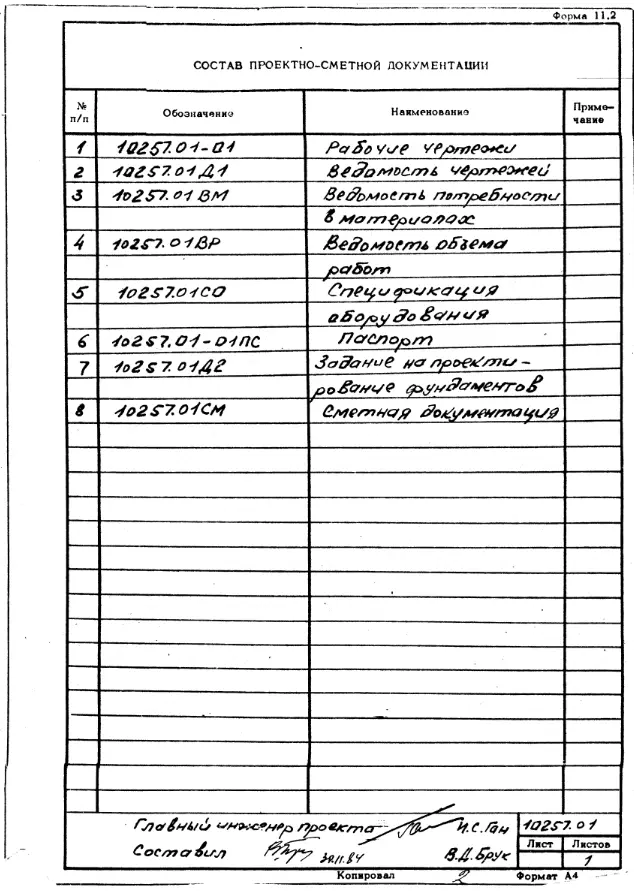 Форма 11.2
СОСТАВ ПРОЕКТНО-СМЕТНОЙ ДОКУМЕНТАЦИИ
№ п/п Обозначение Наименование Приме-чание
1 10257.01-01 Рабочие чертежи
2 10257.01Д1 Ведомость чертежей
3 10257.01ВМ Ведомость потребности
в материалах
4 10257.01ВР Ведомость объема
работ
5 10257.01СО Спецификация
оборудования
6 10257.01-01ПС Паспорт
7 10257.01Д2 Задание на проекти-
рование фундаментов
8 10257.01СМ Сметная документация
Главный инженер проекта И.С.Ган 10257.01
Лист Листов
Составил 30.11.84 В.Д.Брук 1
Копировал 2 Формат А4